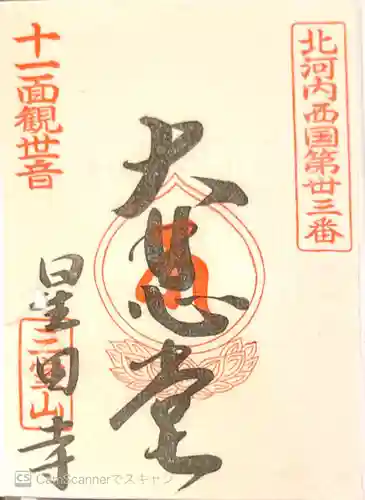 北河内西国第丗三番
大悲堂
十一面觀世音
星田寺
三宝山
CS CamScannerでスキャン